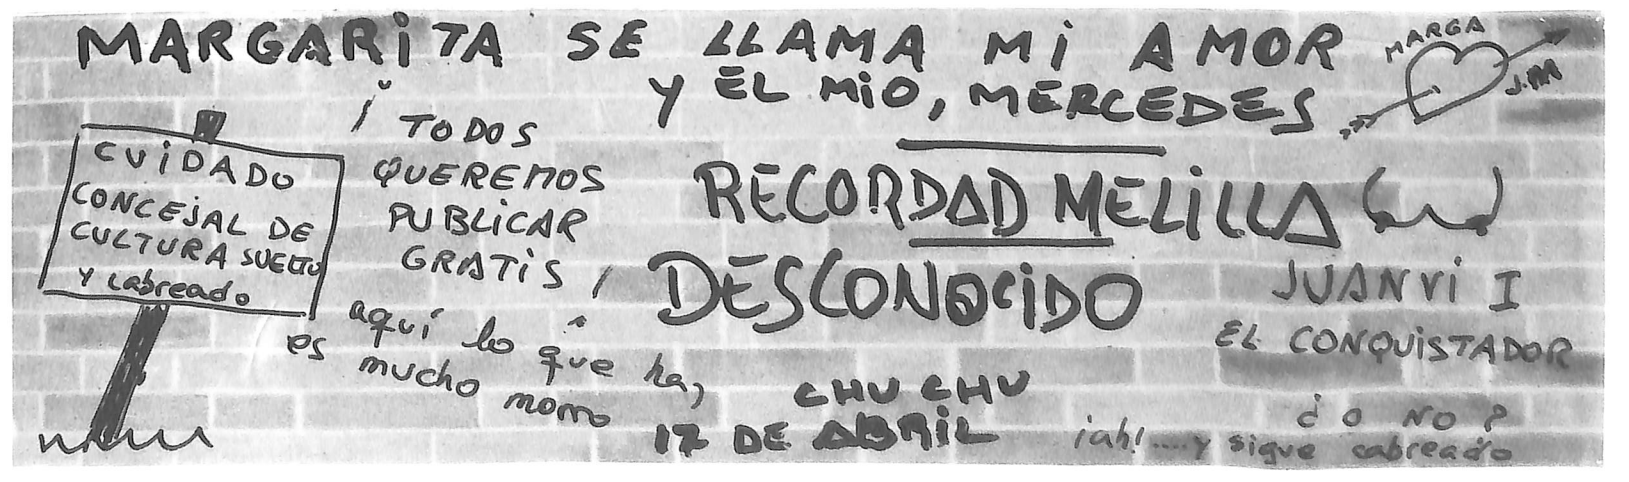 MARGARITA SE LLAMA MI AMOR
Y EL MIO, MERCEDES
MARGA
J.M
CUIDADO
CONCEJAL DE
CULTURA SUELTO
Y cabreado
¡TODOS
QUEREMOS
PUBLICAR
GRATIS!
aquí lo que ha,
es mucho morro
RECORDAD MELILLA
DESCONOCIDO
CHU CHU
17 DE ABRIL
JUANVI I
EL CONQUISTADOR
¿O NO?
¡ah!....y sigue cabreado